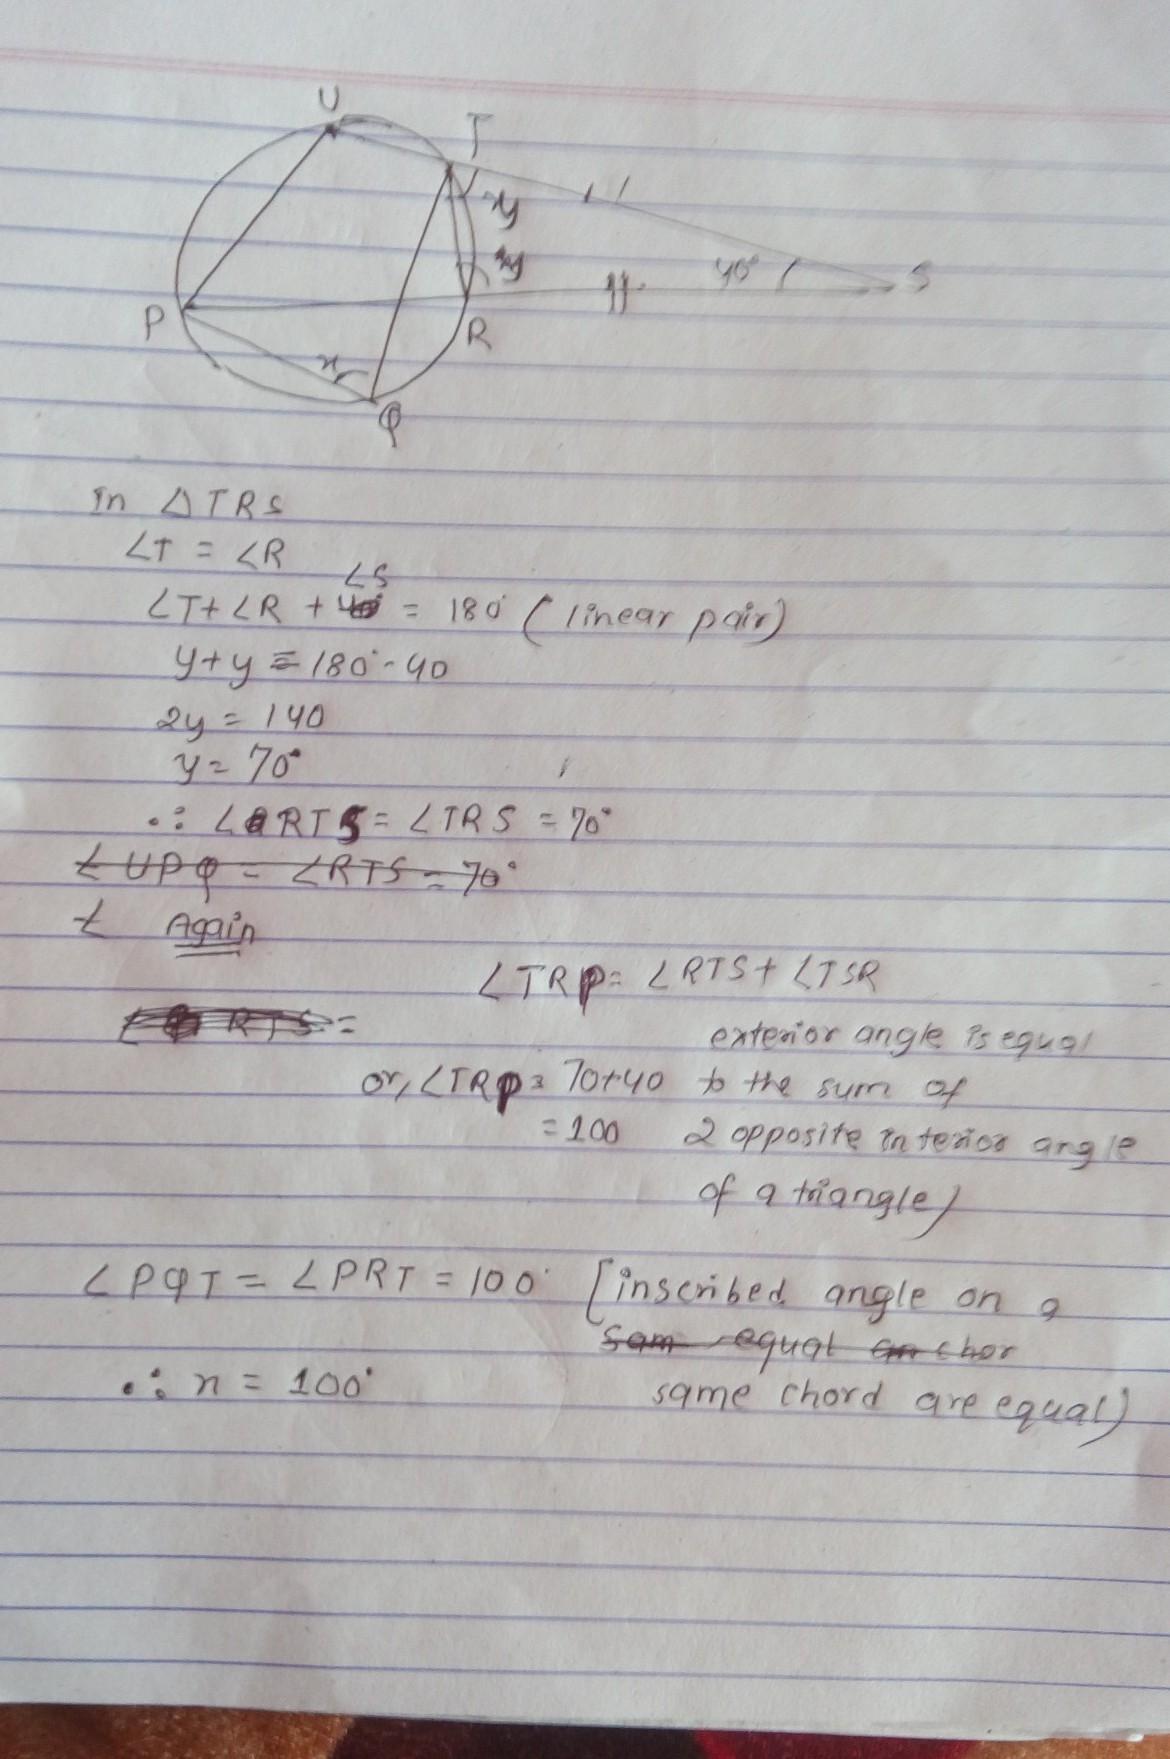 U
T
y
y
40°
S
P
R
x
Q
In △TRS
∠T = ∠R
∠S
∠T+∠R + 40° = 180° (linear pair)
y+y = 180°-40
2y = 140
y = 70°
∴ ∠RTS = ∠TRS = 70°
∠UPQ = ∠RTS = 70°
∠ Again
∠TRP = ∠RTS + ∠TSR
∠ RTS =
exterior angle is equal
or, ∠TRP = 70+40 to the sum of
= 100 2 opposite interior angle
of a triangle)
∠PQT = ∠PRT = 100° [inscribed angle on a
sam equal an chor
∴ x = 100° same chord are equal)